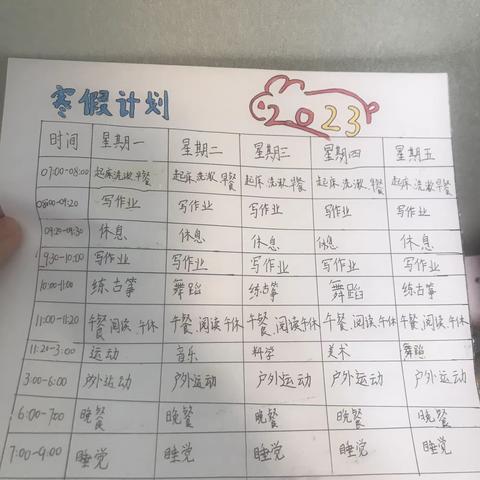 寒假计划 2023
时间 星期一 星期二 星期三 星期四 星期五
07:00-08:00 起床.洗漱.早餐 起床.洗漱.早餐 起床.洗漱.早餐 起床.洗漱.早餐 起床.洗漱.早餐
08:00-09:20 写作业 写作业 写作业 写作业 写作业
09:20-09:30 休息 休息 休息 休息 休息
9:30-10:00 写作业 写作业 写作业 写作业 写作业
10:00-11:00 练古筝 舞蹈 练古筝 舞蹈 练古筝
11:00-11:20 午餐.阅读.午休 午餐.阅读.午休 午餐.阅读.午休 午餐.阅读.午休 午餐.阅读.午休
11:20-3:00 运动 音乐 科学 美术 舞蹈
3:00-6:00 户外运动 户外运动 户外运动 户外运动 户外运动
6:00-7:00 晚餐 晚餐 晚餐 晚餐 晚餐
7:00-9:00 睡觉 睡觉 睡觉 睡觉 睡觉